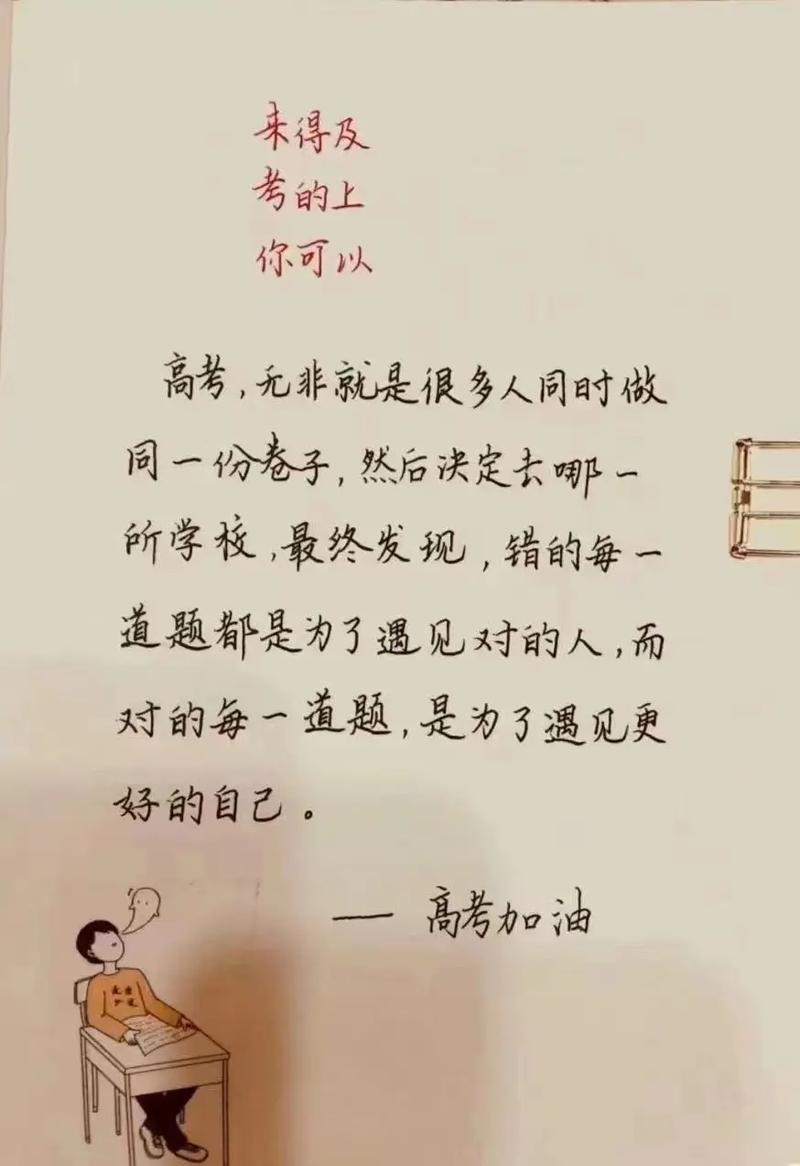 来得及
考的上
你可以
高考,无非就是很多人同时做
同一份卷子,然后决定去哪一
所学校,最终发现,错的每一
道题都是为了遇见对的人,而
对的每一道题,是为了遇见更
好的自己。
—— 高考加油